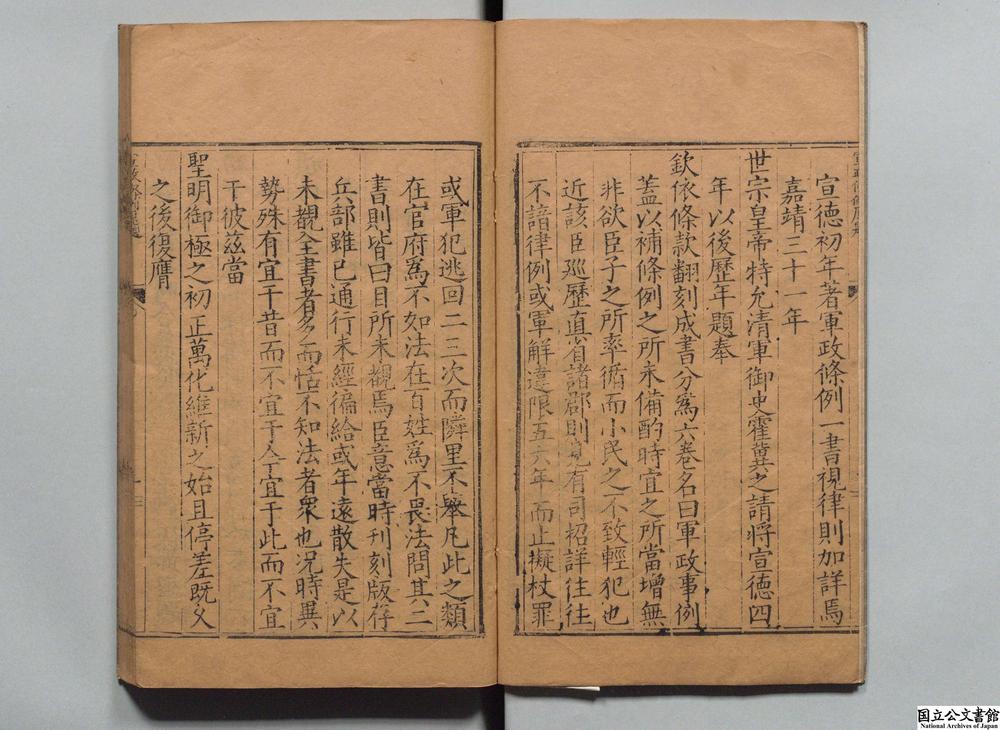 宣德初年著軍政條例一書視律則加詳焉
嘉靖三十一年
世宗皇帝特允清軍御史霍冀之請將宣德四
年以後歷年題奉
欽依條款翻刻成書分爲六卷名曰軍政事例
蓋以補條例之所未備酌時宜之所當增無
非欲臣子之所率循而小民之不致輕犯也
近該臣巡歷真省諸郡則見有司招詳往往
不諳律例或軍解違限五六年而止擬杖罪
或軍犯逃回二三次而隣里不舉凡此之類
在官府爲不如法在百姓爲不畏法問其六
書則皆曰目所未覩焉臣意當時刊刻版存
兵部雖已通行未經徧給或年遠散失是以
未覩全書者多而恬不知法者衆也况時異
勢殊有宜于昔而不宜于今宜于此而不宜
于彼茲當
聖明御極之初正萬化維新之始且停差既久
之後復膺
国立公文書館
National Archives of Japan